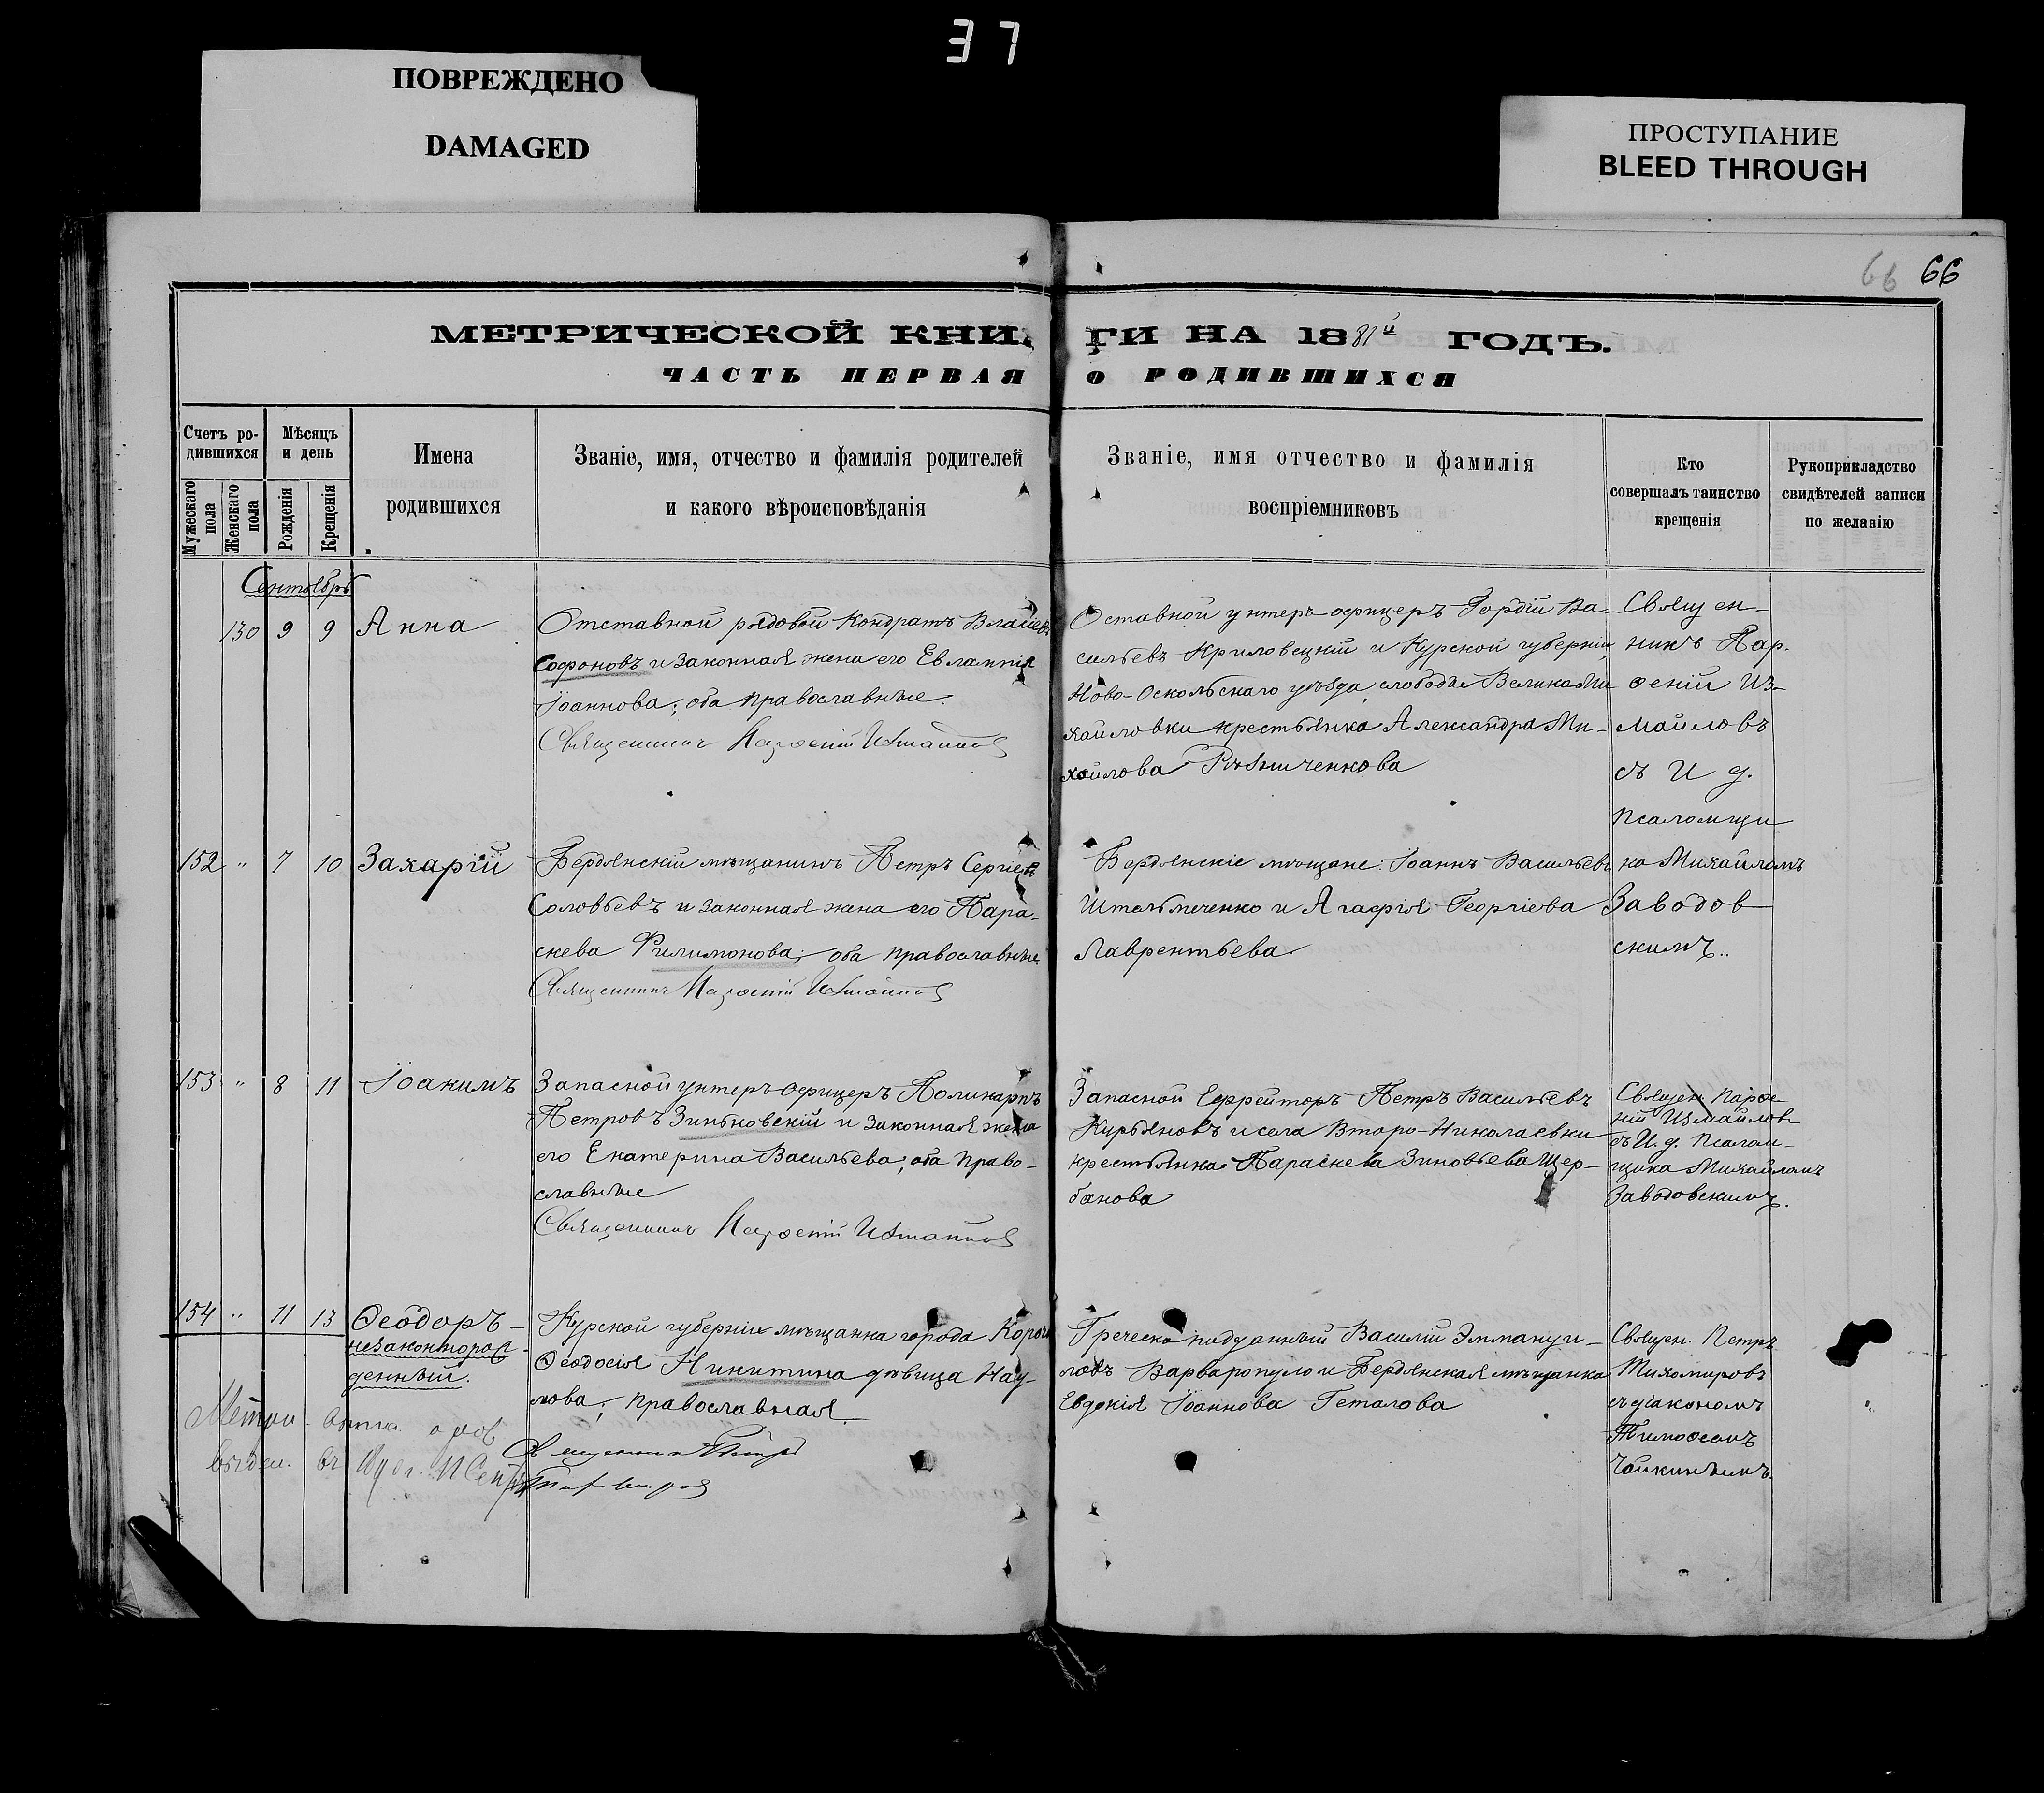 37
ПОВРЕЖДЕНО
DAMAGED
ПРОСТУПАНИЕ
BLEED THROUGH
66 66
МЕТРИЧЕСКОЙ КНИ ГИ НА 1881й ГОДЪ.
ЧАСТЬ ПЕРВАЯ О РОДИВШИХСЯ
Счетъ ро-
дившихся
Мужескаго пола
Женскаго пола
Мѣсяцъ
и день
Рожденія
Крещенія
Имена
родившихся
Званіе, имя, отчество и фамилія родителей
и какого вѣроисповѣданія
Званіе, имя отчество и фамилія
воспріемниковъ
Кто
совершалъ таинство
крещенія
Рукоприкладство
свидѣтелей записи
по желанію
Сентябрь
130 9 9 Анна
Отставной рядовой Кондратъ Власіевъ
Софоновъ и законная жена его Евлампія
Іоаннова; оба православные.
Священникъ Парѳеній Измайловъ
Оставной унтеръ-офицеръ Гордій Ва-
сильевъ Криловецкій и Курской губерніи
Ново-Оскольскаго уѣзда, слободы Велико-Ми-
хайловки крестьянка Александра Ми-
хайлова Рѣзниченкова
Священ-
никъ Пар-
ѳеній Из-
майловъ
съ И. д.
Псаломщи
ка Михаиломъ
Заводов
скимъ..
152 " 7 10 Захарій
Бердянскій мѣщанинъ Петръ Сергіевъ
Соловьевъ и законная жена его Пара-
скева Филимонова; оба православные.
Священникъ Парѳеній Измайловъ
Бердянскіе мѣщане: Іоаннъ Васильевъ
Штельмеченко и Агафія Георгіева
Лаврентьева.
153 " 8 11 Іоакимъ
Запасной унтеръ-офицеръ Поликарпъ
Петровъ Зиньковскій и законная жена
его Екатерина Васильева; оба право-
славные
Священникъ Парѳеній Измайловъ
Запасной Ефрейторъ Петръ Васильевъ
Курьяновъ и села Второ-Николаевки
крестьянка Параскева Зиновьева Щер-
бакова
Священ. Парѳе-
ній Измайловъ
съ И. д. Псалом-
щика Михаиломъ
Заводовскимъ.
154 " 11 13 Ѳеодоръ-
незаконнорож-
денный.
Курской губерніи мѣщанка города Короч
Ѳеодосія Никитина дѣвица Нау-
мова; православная.
Священникъ Петръ
Тихомировъ
Греческо подданный Василій Эммануи-
ловъ Варваропуло и Бердянская мѣщанка
Евдокія Іоаннова Геталова
Священ. Петръ
Тихомировъ
съ діакономъ
Тимоѳеемъ
Чайкинымъ.
Метри
выдан. въ